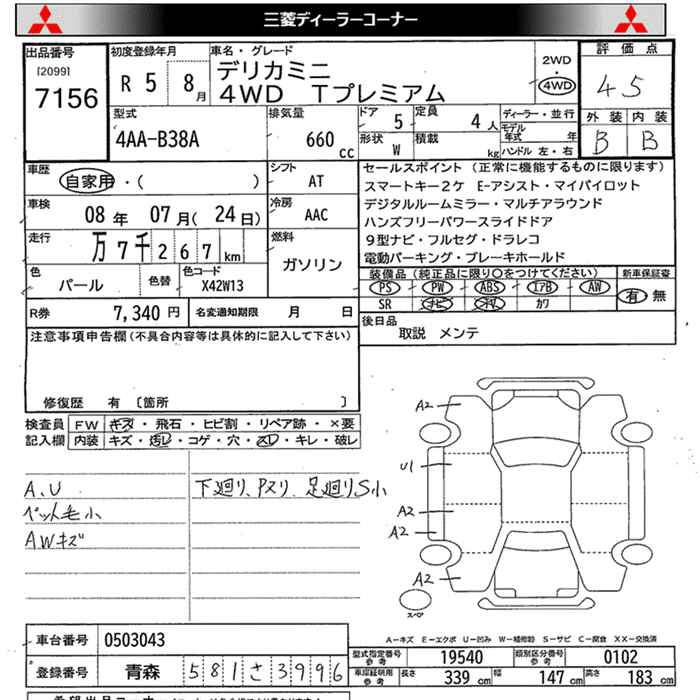 三菱ディーラーコーナー
出品番号 初度登録年月 車名・グレード 評価点
[2099] R 5 8月 デリカミニ 2WD 45
7156 4WD Tプレミアム 4WD
外装 内装
B B
型式 排気量 ドア 5 定員 4人 ディーラー・並行
4AA-B38A 660cc 形状 W 積載 kg モデル年式 年
ハンドル 左・右
車歴 自家用・( ) シフト AT セールスポイント (正常に機能するものに限ります)
スマートキー2ケ E-アシスト・マイパイロット
車検 08年 07月(24日) 冷房 AAC デジタルルームミラー・マルチアラウンド
ハンズフリーパワースライドドア
走行 万7千267km 燃料 ガソリン 9型ナビ・フルセグ・ドラレコ
電動パーキング・ブレーキホールド
色 パール 色替 色コード X42W13 装備品(純正品に限り○をつけてください) 新車保証書
PS PW ABS エアB AW 有 無
SR ナビ TV カワ
R券 7,340円 名変通知期限 月 日 後日品
取説 メンテ
注意事項申告欄(不具合内容等は具体的に記入して下さい)
修復歴 有 〔箇所 〕
検査員 FW キズ・飛石・ヒビ割・リペア跡・×要
記入欄 内装 キズ・汚レ・コゲ・穴・スレ・キレ・破レ
A、U 下廻り、Pヌリ、足廻りS小
ペット毛小
AWキズ
A2
U1
A2
A2
A2
スペア
A-キズ E-エクボ U-凹み W-補修跡 S-サビ C-腐食 XX-交換済
車台番号 0503043
型式指定番号 参考 19540 類別区分番号 参考 0102
登録番号 青森 581さ3996
車庫証明用 参考 長さ 339cm 幅 147cm 高さ 183cm